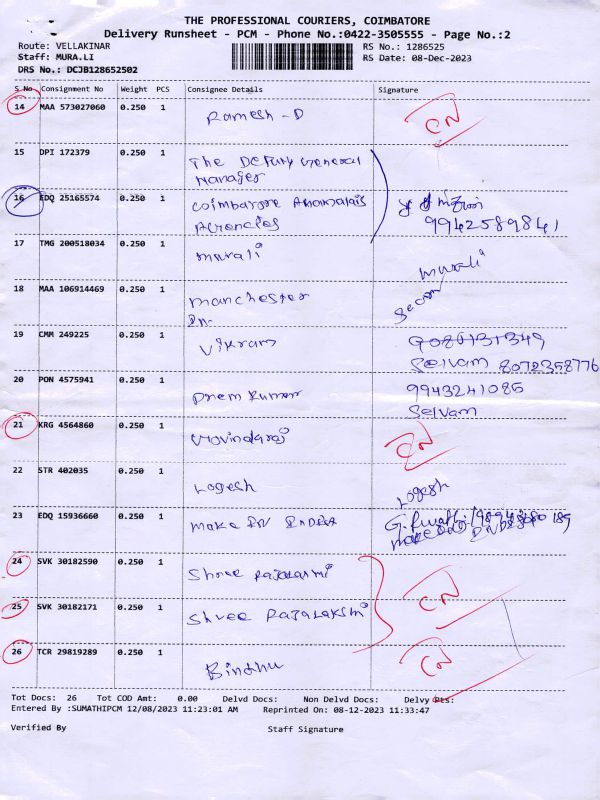 THE PROFESSIONAL COURIERS, COIMBATORE
Delivery Runsheet - PCM - Phone No.:0422-3505555 - Page No.:2
Route: VELLAKINAR RS No.: 1286525
Staff: MURA.LI RS Date: 08-Dec-2023
DRS No.: DCJB128652502
S No Consignment No Weight PCS Consignee Details Signature
14 MAA 573027060 0.250 1 Ramesh - D CN
15 DPI 172379 0.250 1 The Deputy General
Manager
16 EDQ 25165574 0.250 1 Coimbatore Anamalais
Agencies
9942589841
17 TMG 200518034 0.250 1 murali murali
18 MAA 106914469 0.250 1 manchester
19 CMM 249225 0.250 1 Vikram
Selvam 8072358776
20 PON 4575941 0.250 1 Prem Kumar 9943241085
Selvam
21 KRG 4564860 0.250 1 Govindaraj CN
22 STR 402035 0.250 1 Logesh Logesh
23 EDQ 15936660 0.250 1 Make IN INDIA
24 SVK 30182590 0.250 1 Shree Rajalaxmi
25 SVK 30182171 0.250 1 Shree Rajalakshmi CN
26 TCR 29819289 0.250 1 Bindhu CN
Tot Docs: 26 Tot COD Amt: 0.00 Delvd Docs: Non Delvd Docs: Delvy Pts:
Entered By :SUMATHIPCM 12/08/2023 11:23:01 AM Reprinted On: 08-12-2023 11:33:47
Verified By Staff Signature